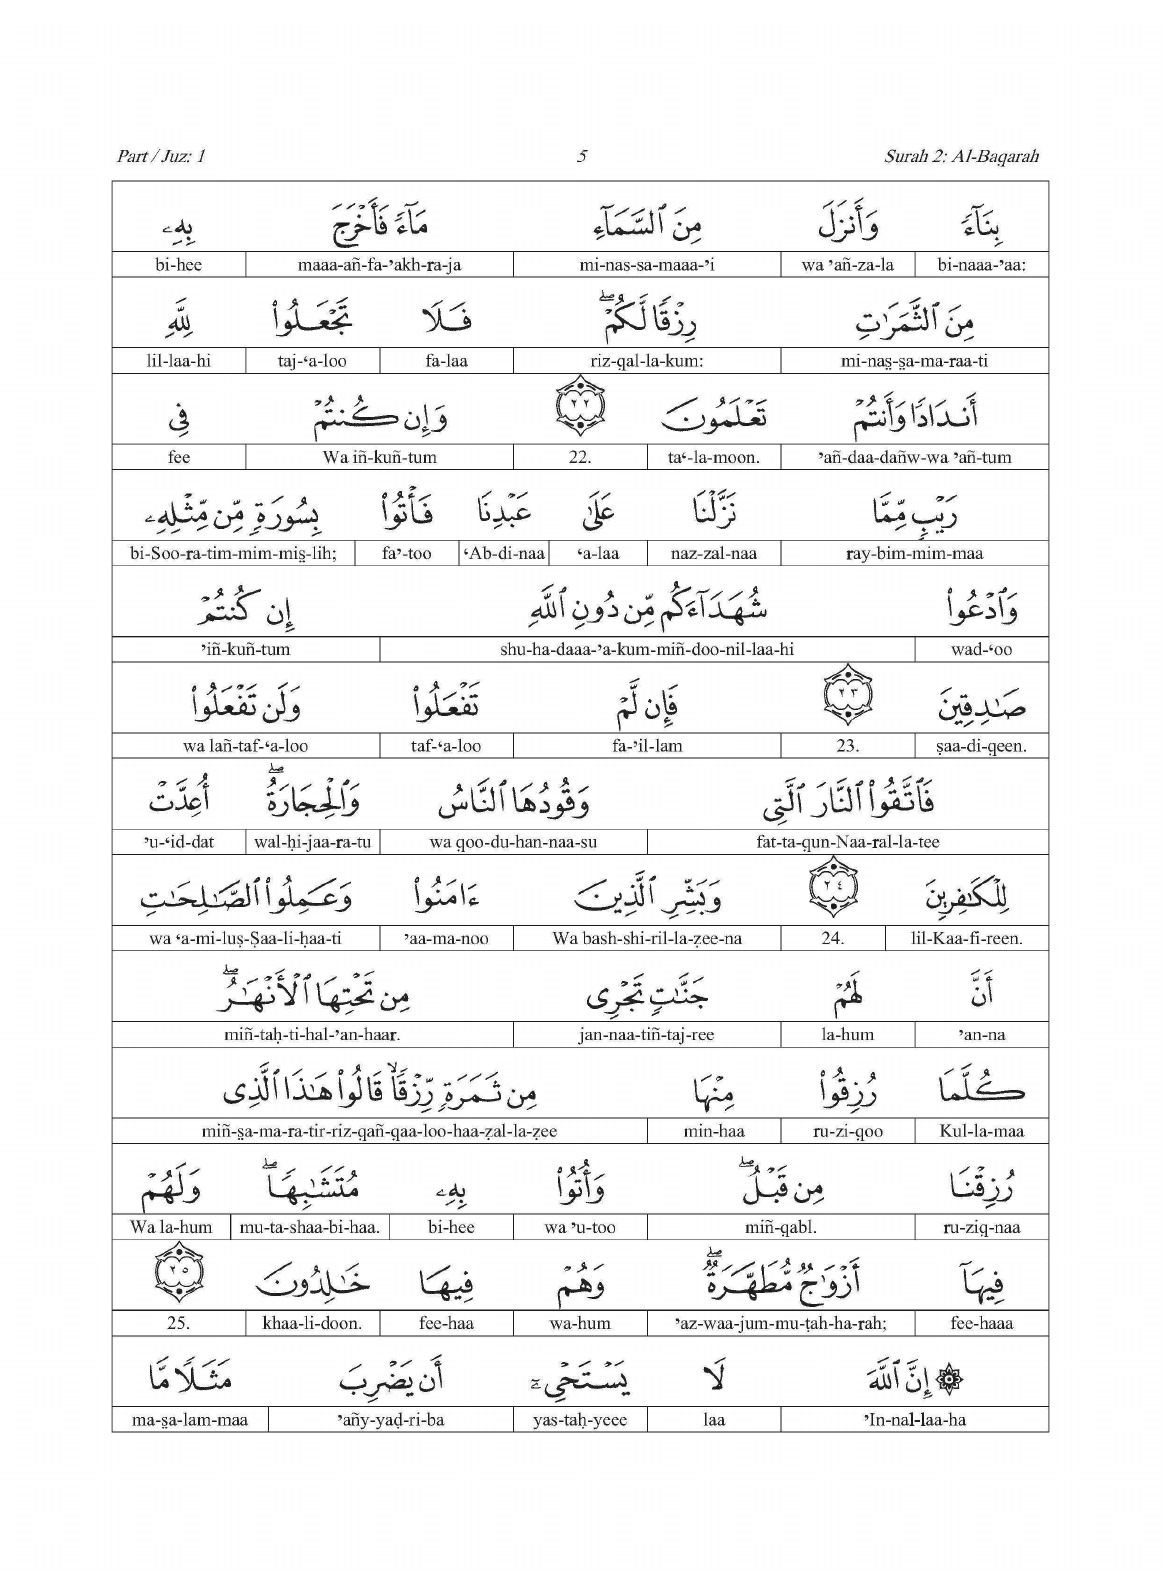 Part / Juz: 1 5 Surah 2: Al-Baqarah
بِنَآءً وَأَنزَلَ مِنَ ٱلسَّمَآءِ مَآءً فَأَخْرَجَ بِهِۦ
bi-naaa-’aa: wa ’añ-za-la mi-nas-sa-maaa-’i maaa-añ-fa-’akh-ra-ja bi-hee
مِنَ ٱلثَّمَرَٰتِ رِزْقًا لَّكُمْ ۖ فَلَا تَجْعَلُوا۟ لِلَّهِ
mi-nas̱-s̱a-ma-raa-ti riz-qal-la-kum: fa-laa taj-‘a-loo lil-laa-hi
أَندَادًا وَأَنتُمْ تَعْلَمُونَ ٢٢ وَإِن كُنتُمْ فِى
’añ-daa-dañw-wa ’añ-tum ta‘-la-moon. 22. Wa iñ-kuñ-tum fee
رَيْبٍ مِّمَّا نَزَّلْنَا عَلَىٰ عَبْدِنَا فَأْتُوا۟ بِسُورَةٍ مِّن مِّثْلِهِۦ
ray-bim-mim-maa naz-zal-naa ‘a-laa ‘Ab-di-naa fa’-too bi-Soo-ra-tim-mim-mis̱-lih;
وَٱدْعُوا۟ شُهَدَآءَكُم مِّن دُونِ ٱللَّهِ إِن كُنتُمْ
wad-‘oo shu-ha-daaa-’a-kum-miñ-doo-nil-laa-hi ’iñ-kuñ-tum
صَٰدِقِينَ ٢٣ فَإِن لَّمْ تَفْعَلُوا۟ وَلَن تَفْعَلُوا۟
ṣaa-di-qeen. 23. fa-’il-lam taf-‘a-loo wa lañ-taf-‘a-loo
فَٱتَّقُوا۟ ٱلنَّارَ ٱلَّتِى وَقُودُهَا ٱلنَّاسُ وَٱلْحِجَارَةُ ۖ أُعِدَّتْ
fat-ta-qun-Naa-ral-la-tee wa qoo-du-han-naa-su wal-ḥi-jaa-ra-tu ’u-‘id-dat
لِلْكَٰفِرِينَ ٢٤ وَبَشِّرِ ٱلَّذِينَ ءَامَنُوا۟ وَعَمِلُوا۟ ٱلصَّٰلِحَٰتِ
lil-Kaa-fi-reen. 24. Wa bash-shi-ril-la-ẕee-na ’aa-ma-noo wa ‘a-mi-luṣ-Ṣaa-li-ḥaa-ti
أَنَّ لَهُمْ جَنَّٰتٍ تَجْرِى مِن تَحْتِهَا ٱلْأَنْهَٰرُ ۖ
’an-na la-hum jan-naa-tiñ-taj-ree miñ-taḥ-ti-hal-’an-haar.
كُلَّمَا رُزِقُوا۟ مِنْهَا مِن ثَمَرَةٍ رِّزْقًا ۙ قَالُوا۟ هَٰذَا ٱلَّذِى
Kul-la-maa ru-zi-qoo min-haa miñ-s̱a-ma-ra-tir-riz-qañ-qaa-loo-haa-ẕal-la-ẕee
رُزِقْنَا مِن قَبْلُ ۖ وَأُتُوا۟ بِهِۦ مُتَشَٰبِهًا ۖ وَلَهُمْ
ru-ziq-naa miñ-qabl. wa ’u-too bi-hee mu-ta-shaa-bi-haa. Wa la-hum
فِيهَآ أَزْوَٰجٌ مُّطَهَّرَةٌ ۖ وَهُمْ فِيهَا خَٰلِدُونَ ٢٥
fee-haaa ’az-waa-jum-mu-ṭah-ha-rah; wa-hum fee-haa khaa-li-doon. 25.
۞ إِنَّ ٱللَّهَ لَا يَسْتَحْىِۦٓ أَن يَضْرِبَ مَثَلًا مَّا
’In-nal-laa-ha laa yas-taḥ-yeee ’añy-yaḍ-ri-ba ma-s̱a-lam-maa